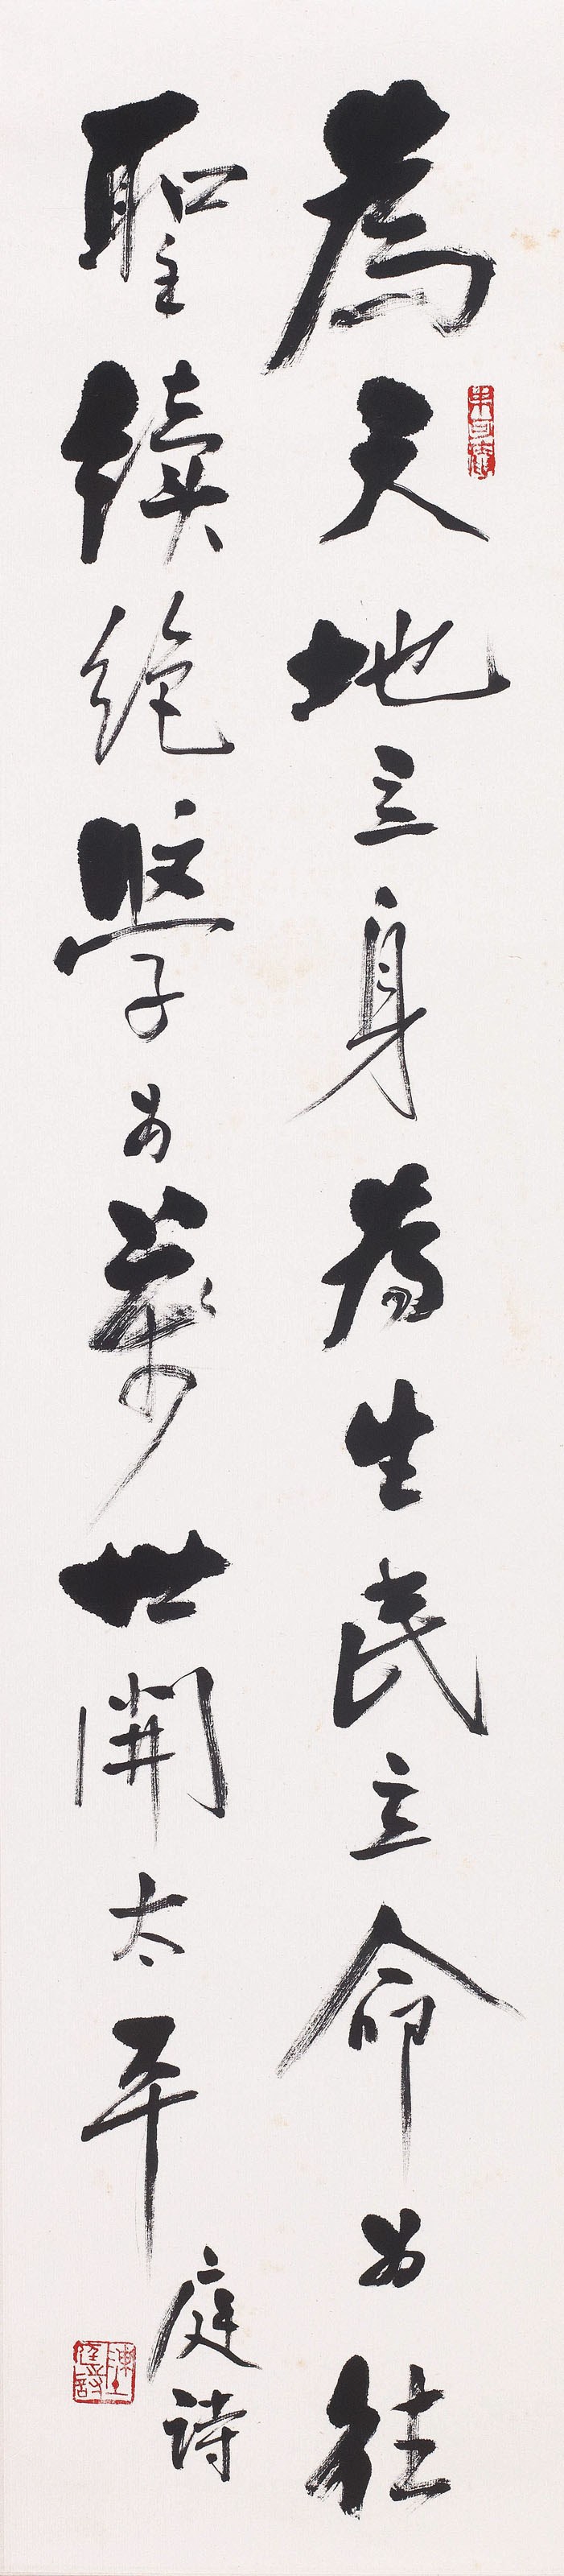 為天地立身為生民立命為往
聖續絕學為萬世開太平
庭詩
陳庭詩